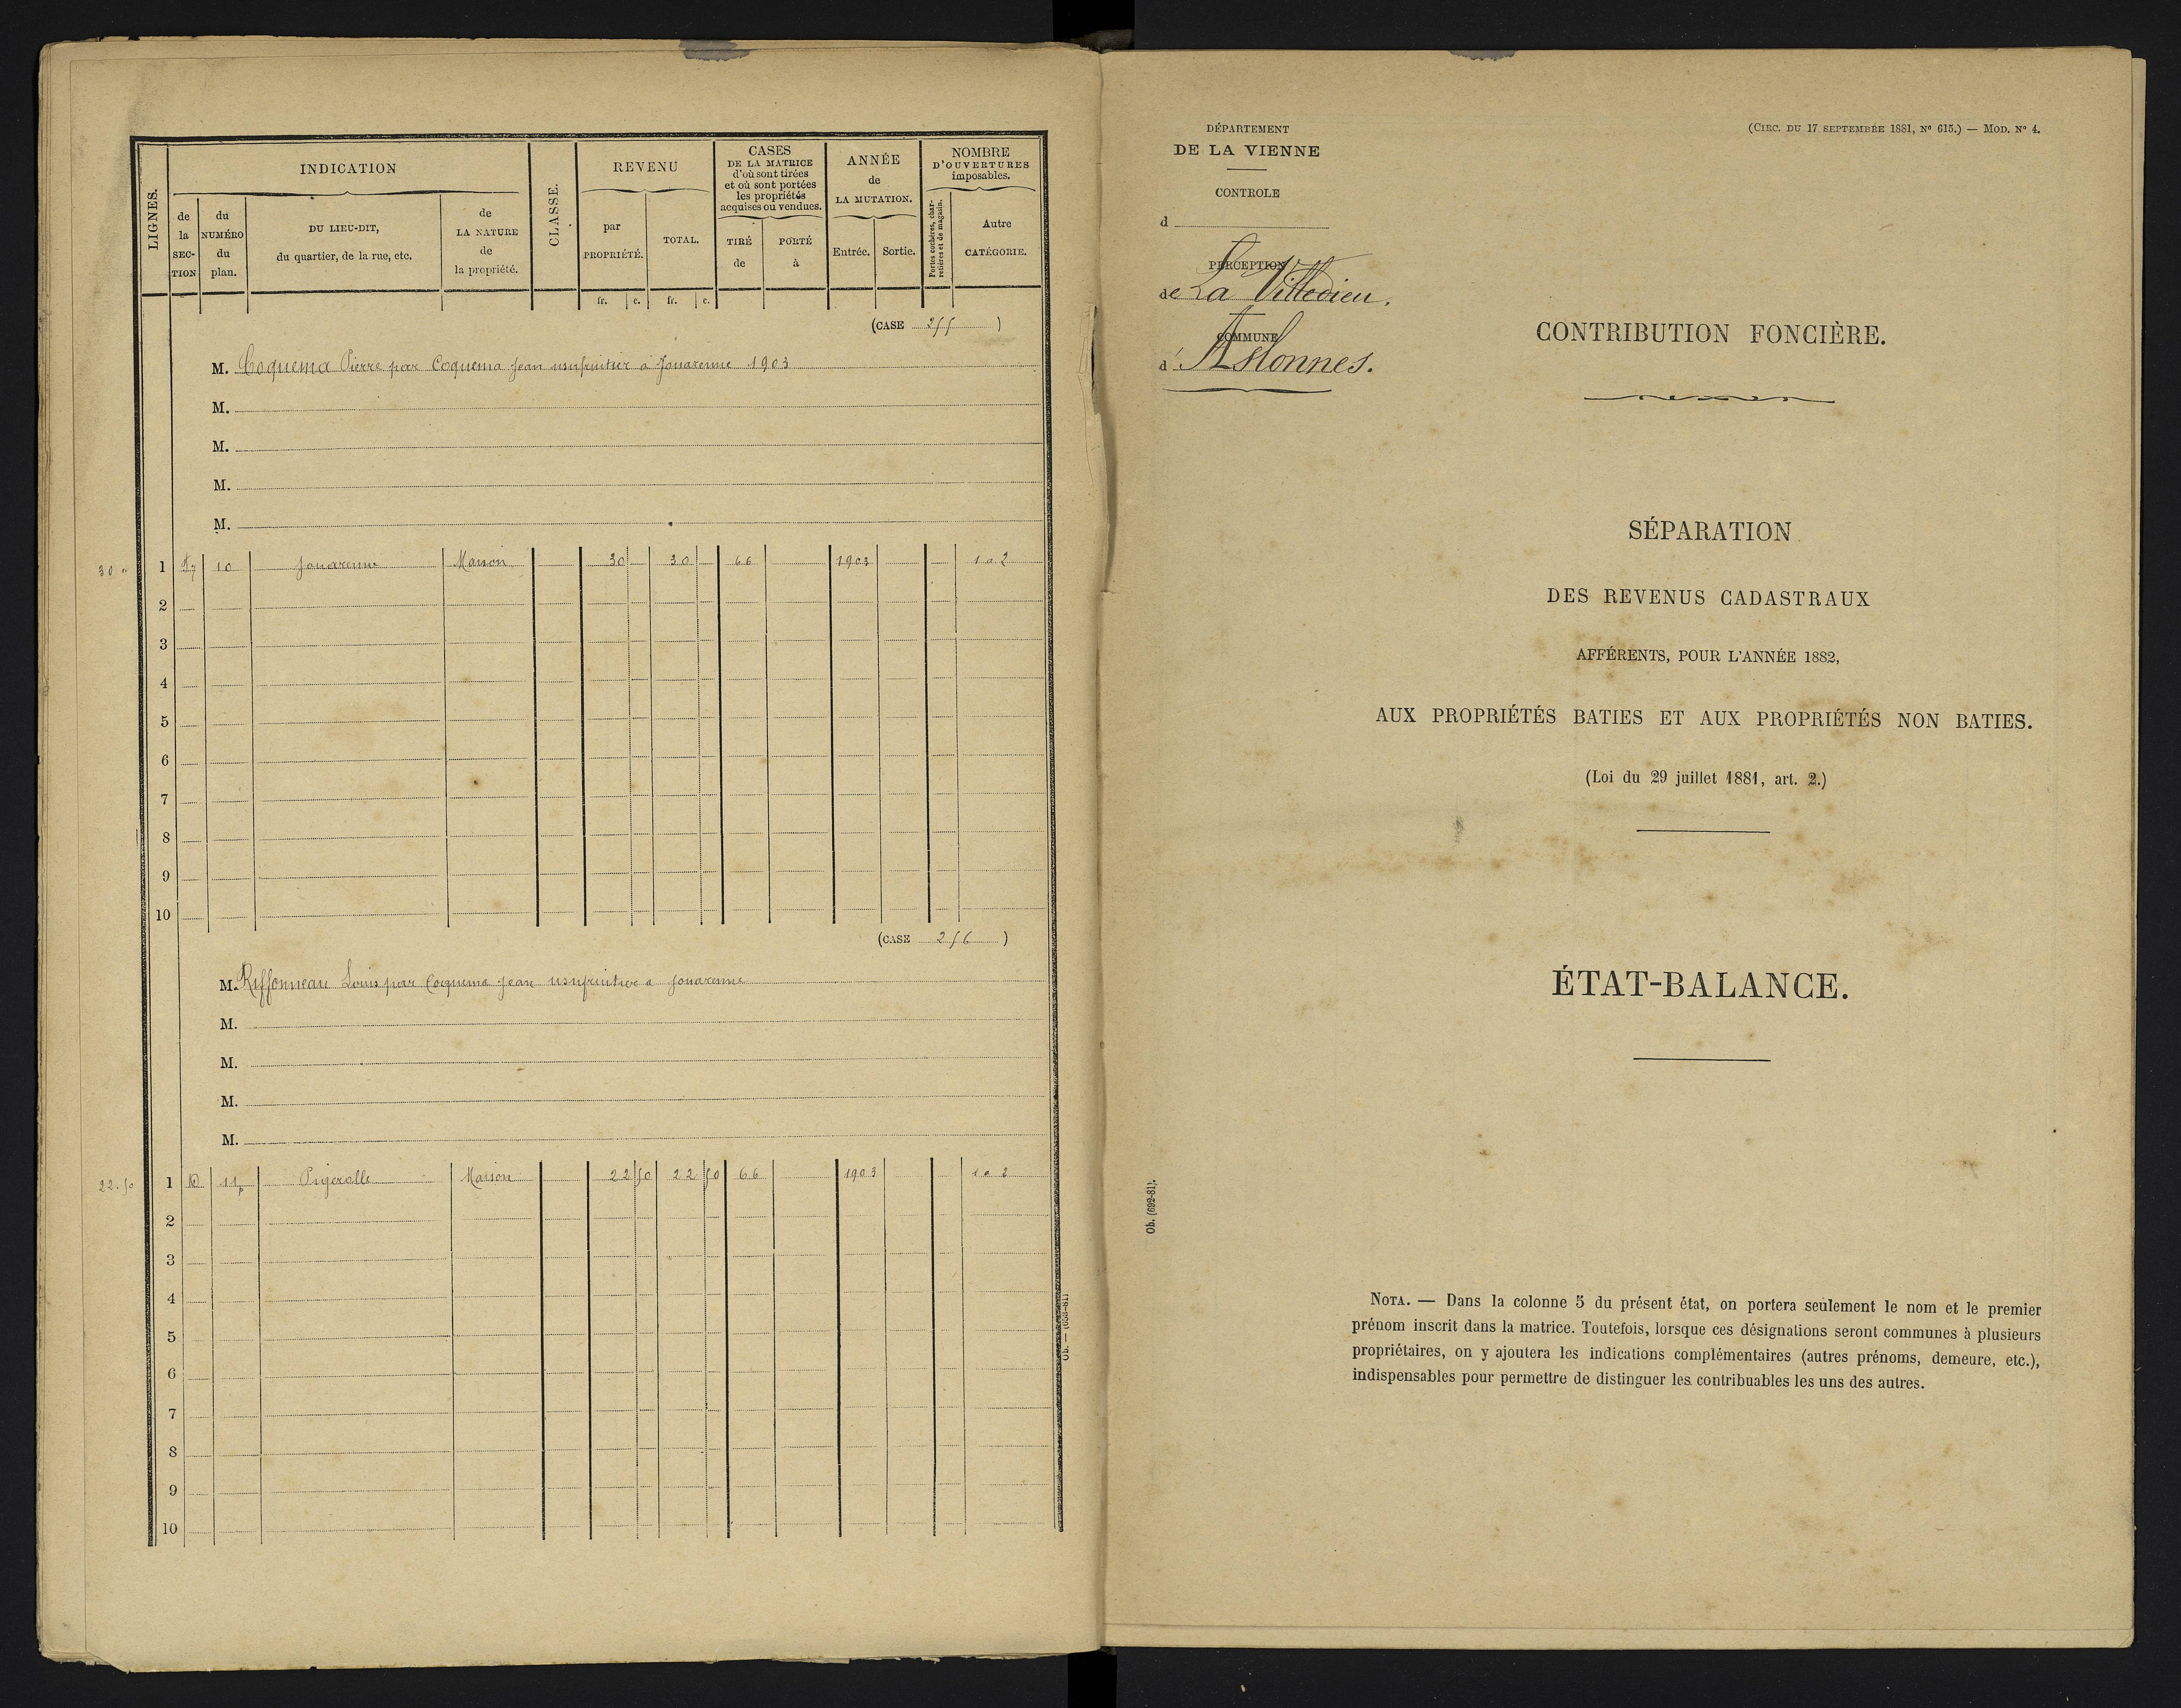 LIGNES.
INDICATION
de la SECTION
du NUMÉRO du plan.
DU LIEU-DIT, du quartier, de la rue, etc.
de LA NATURE de la propriété.
CLASSE.
REVENU
par PROPRIÉTÉ.
TOTAL.
CASES DE LA MATRICE d'où sont tirées et où sont portées les propriétés acquises ou vendues.
TIRÉ de
PORTÉ à
ANNÉE de LA MUTATION.
Entrée.
Sortie.
NOMBRE D'OUVERTURES imposables.
Portes cochères, charretières et de magasin.
Autre CATÉGORIE.
fr. c. fr. c.
(CASE 255)
M. Coquema Pierre par Coquema Jean usufruitier à Jouarenne 1903
M.
M.
M.
M.
30 " 1 10 Jouarenne Maison 30 30 66 1903 1 a 2
2
3
4
5
6
7
8
9
10
(CASE 256)
M. Riffonneau Louis par Coquema Jean usufruitier a Jouarenne
M.
M.
M.
M.
22.50 1 D 11p Pigerolle Maison 22 50 22 50 66 1903 1 a 2
2
3
4
5
6
7
8
9
10
Ob. — (698-81)
DÉPARTEMENT
DE LA VIENNE
CONTROLE
d
PERCEPTION
de La Villedieu.
COMMUNE
d'Aslonnes.
(CIRC. DU 17 SEPTEMBRE 1881, N° 615.) — MOD. N° 4.
CONTRIBUTION FONCIÈRE.
SÉPARATION
DES REVENUS CADASTRAUX
AFFÉRENTS, POUR L'ANNÉE 1882,
AUX PROPRIÉTÉS BATIES ET AUX PROPRIÉTÉS NON BATIES.
(Loi du 29 juillet 1881, art. 2.)
ÉTAT-BALANCE.
Ob. (692-81).
NOTA. — Dans la colonne 5 du présent état, on portera seulement le nom et le premier
prénom inscrit dans la matrice. Toutefois, lorsque ces désignations seront communes à plusieurs
propriétaires, on y ajoutera les indications complémentaires (autres prénoms, demeure, etc.),
indispensables pour permettre de distinguer les contribuables les uns des autres.